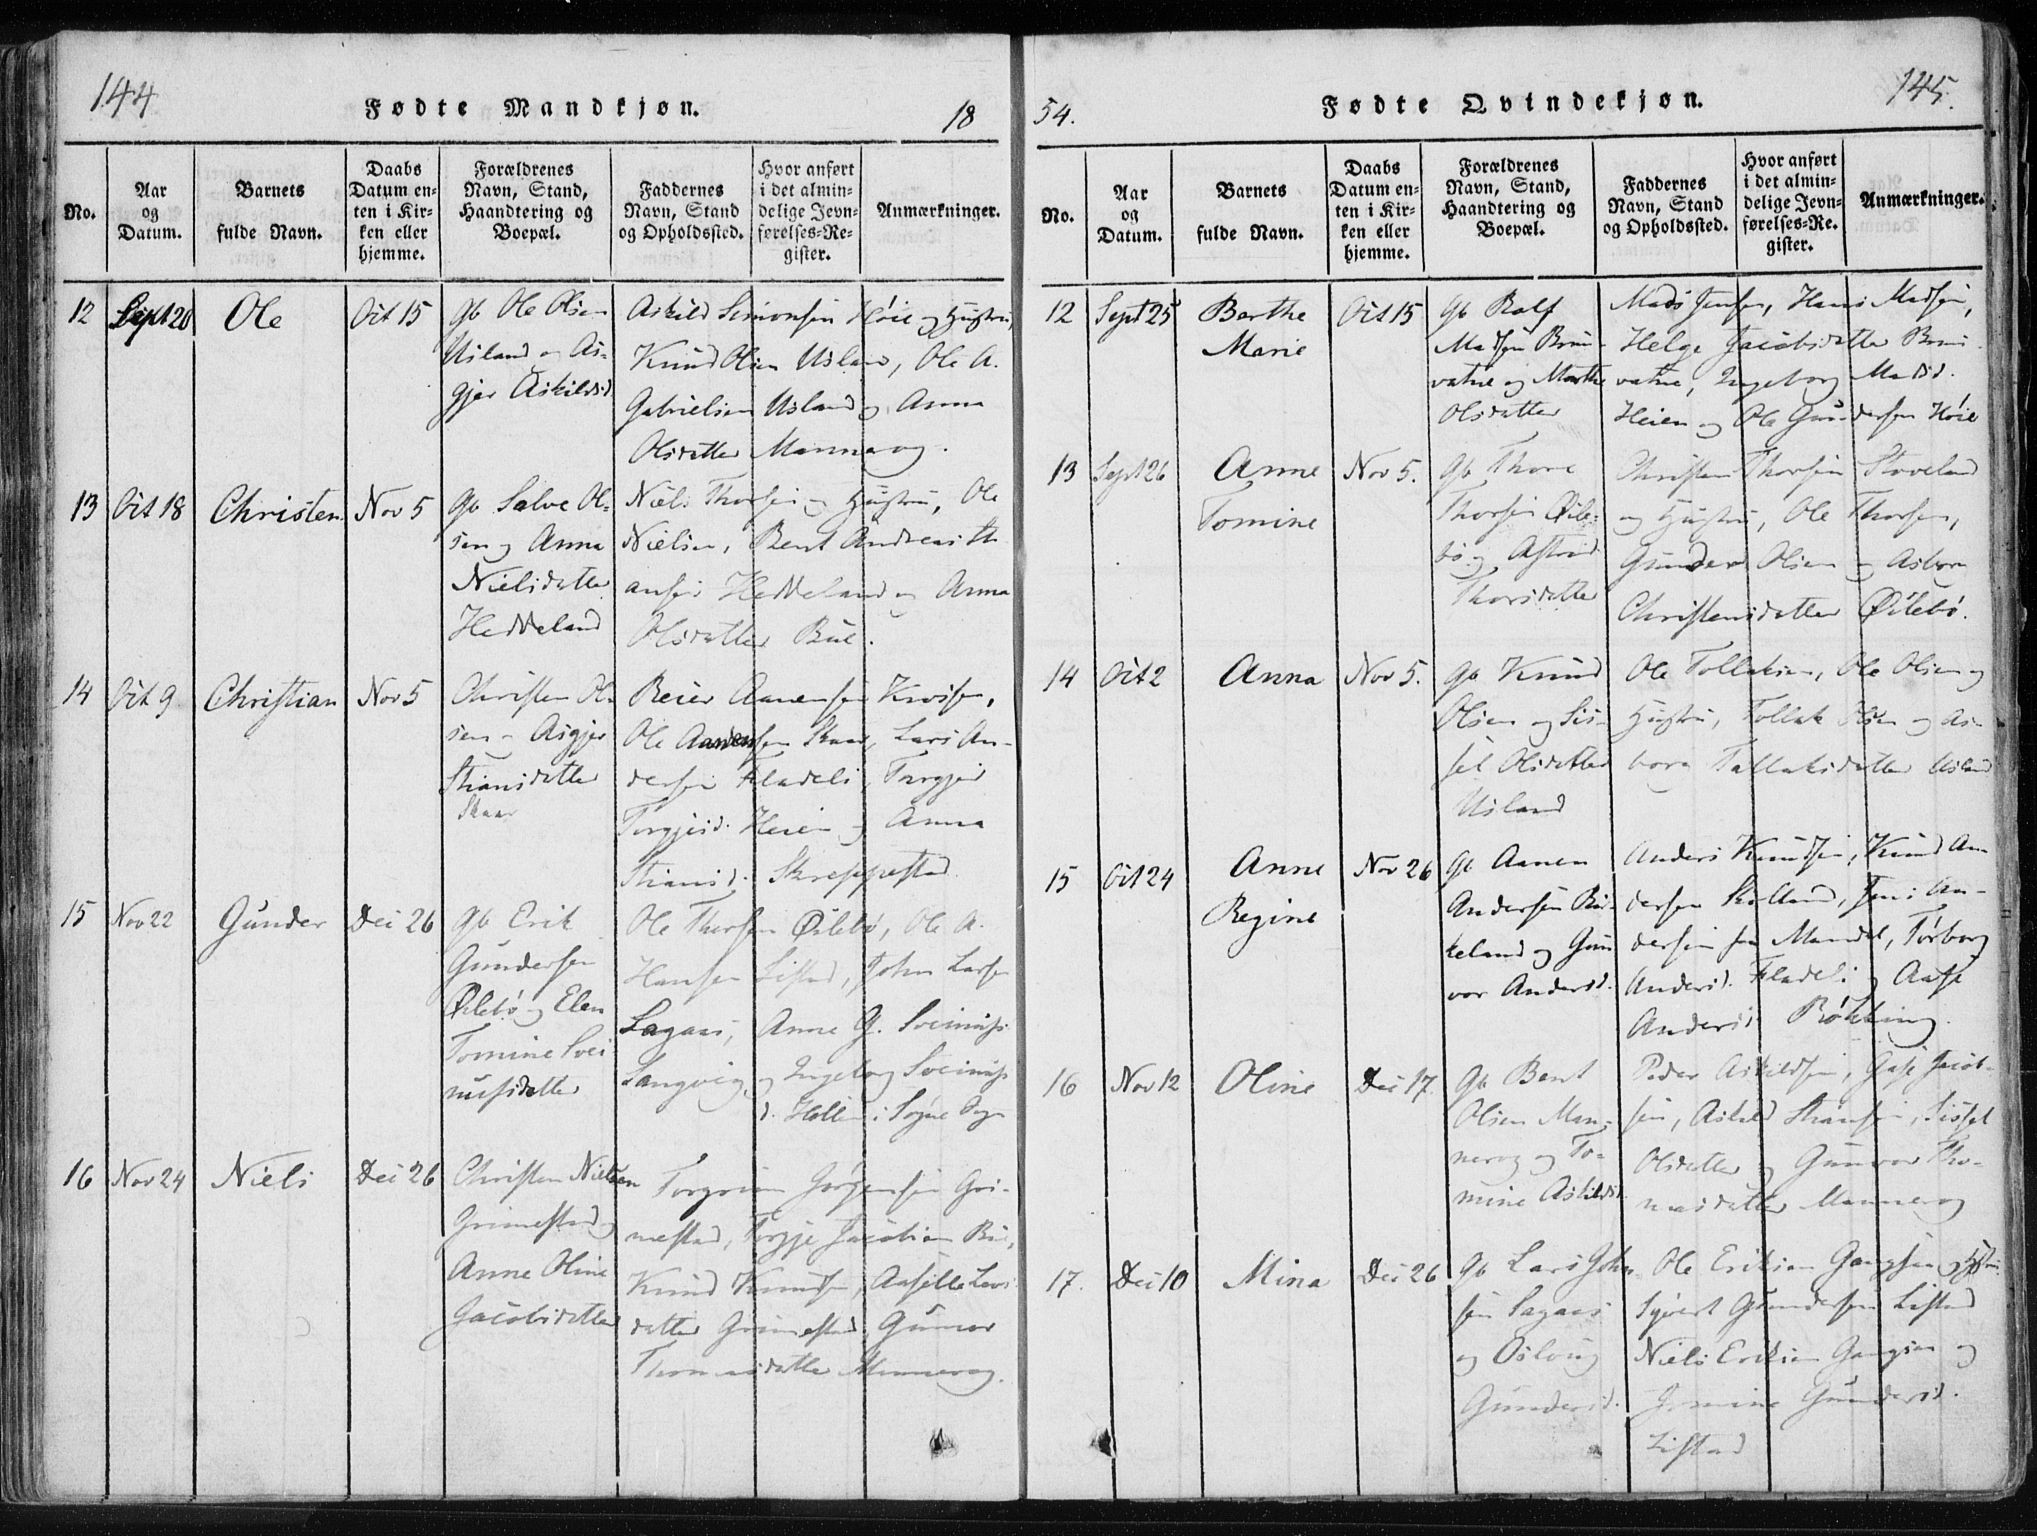 144
Fødte Mandkjøn.
18
No.
Aar og Datum.
Barnets fulde Navn.
Daabs Datum enten i Kirken eller hjemme.
Forældrenes Navn, Stand, Haandtering og Boepæl.
Faddernes Navn, Stand og Opholdssted.
Hvor anført i det almindelige Jevnførelses-Register.
Anmærkninger.
12 Sept 20 Ole Oct 15
Gb Ole Olsen
Usland og As-
gjer Askildsd
Askild Simonsen Høie og Hustru,
Knud Olsen Usland, Ole A.
Gabrielsen Usland og Anna
Olsdatter Mannerog.
13 Oct 18 Christen Nov 5
Gb Salve Ol-
sen og Anna
Nielsdatter
Heddeland
Niels Thorsen og Hustru, Ole
Nielsen, Bent Andreas
Heddeland og Anna
Olsdatter Bue.
14 Oct 9 Christian Nov 5
Christen Ol-
sen - Asgjer
Stiansdatter
Skaar
Reier Aanensen
Ole Aanensen Skaar, Lars An-
dersen Fladeli, Torgjer
Torgjersd. Heien og Anna
Stiansd. Skreppestad.
15 Nov 22 Gunder Dec 26
Gb Erik
Gundersen
Øilebø og Elen
Tomine Svei
nusdatter
Ole Thorsen Øilebø, Ole A.
Hansen Lifstad, John Larsen
Lagaas, Anne G.
Langvig og Ingeborg
d. Hollen i Søgne Sogn
16 Nov 24 Niels Dec 26
Christen Nielsen
Grimestad og
Anne Oline
Jacobsdatter
Torgrim Jørgensen Gri-
mestad, Torgje Jacobsen Bue,
Knud Knudsen, Aasille Lars
datter Grimestad, Gunvor
Thomasdatter Mannerog.
54.
Fødte Qvindekjøn.
145.
No.
Aar og Datum.
Barnets fulde Navn.
Daabs Datum enten i Kirken eller hjemme.
Forældrenes Navn, Stand, Haandtering og Boepæl.
Faddernes Navn, Stand og Opholdssted.
Hvor anført i det almindelige Jevnførelses-Register.
Anmærkninger.
12 Sept 25 Berthe Marie Oct 15
Gb Rolf
Madsen Brun-
vatne og Marthe
Olsdatter
Mads Jensen, Hans Madsen,
Helge Jacobsdatter Brun-
vatne, Ingeborg Madsd.
Heien og Ole Gundersen Høie
13 Sept 26 Anne Tomine Nov 5.
Gb Thore
Thorsen Øile-
bø og Astrid
Thorsdatter
Christen Thorsen Stoveland
og Hustru, Ole Thorsen,
Gunder Olsen og Asbora
Christensdatter Øilebø.
14 Oct 2 Anna Nov 5.
Gb Knud
Olsen og Sis-
sel Olsdatter
Usland
Ole Tollaksen, Ole Olsen og
Hustru, Tollak Olsen og As-
bora Tallaksdatter Usland
15 Oct 24 Anne Regine Nov 26
Gb Aanen
Andersen Bir-
keland og Gun
vor Andersd.
Anders Knudsen, Knud An-
dersen Skolland, Jens An-
dersen fra Mandal, Torborg
Andersd. Fladeli og Aase
Andersd. Røkking.
16 Nov 12 Oline Dec 17.
Gb Bent
Olsen Man-
nerog og To-
mine Askildsd.
Peder Askildsen, Jacob-
sen, Askild Stiansen, Sissel
Olsdatter og Gunvor Tho-
masdatter Mannerog
17. Dec 10 Mina Dec 26
Gb Lars John
sen Lagaas
og Oslaug
Gundersd.
Ole Eriksen Gangsaa og Hustru
Syvert Gundersen Lifstad
Niels Eriksen Gangsaa og
Gundersd.
Lifstad